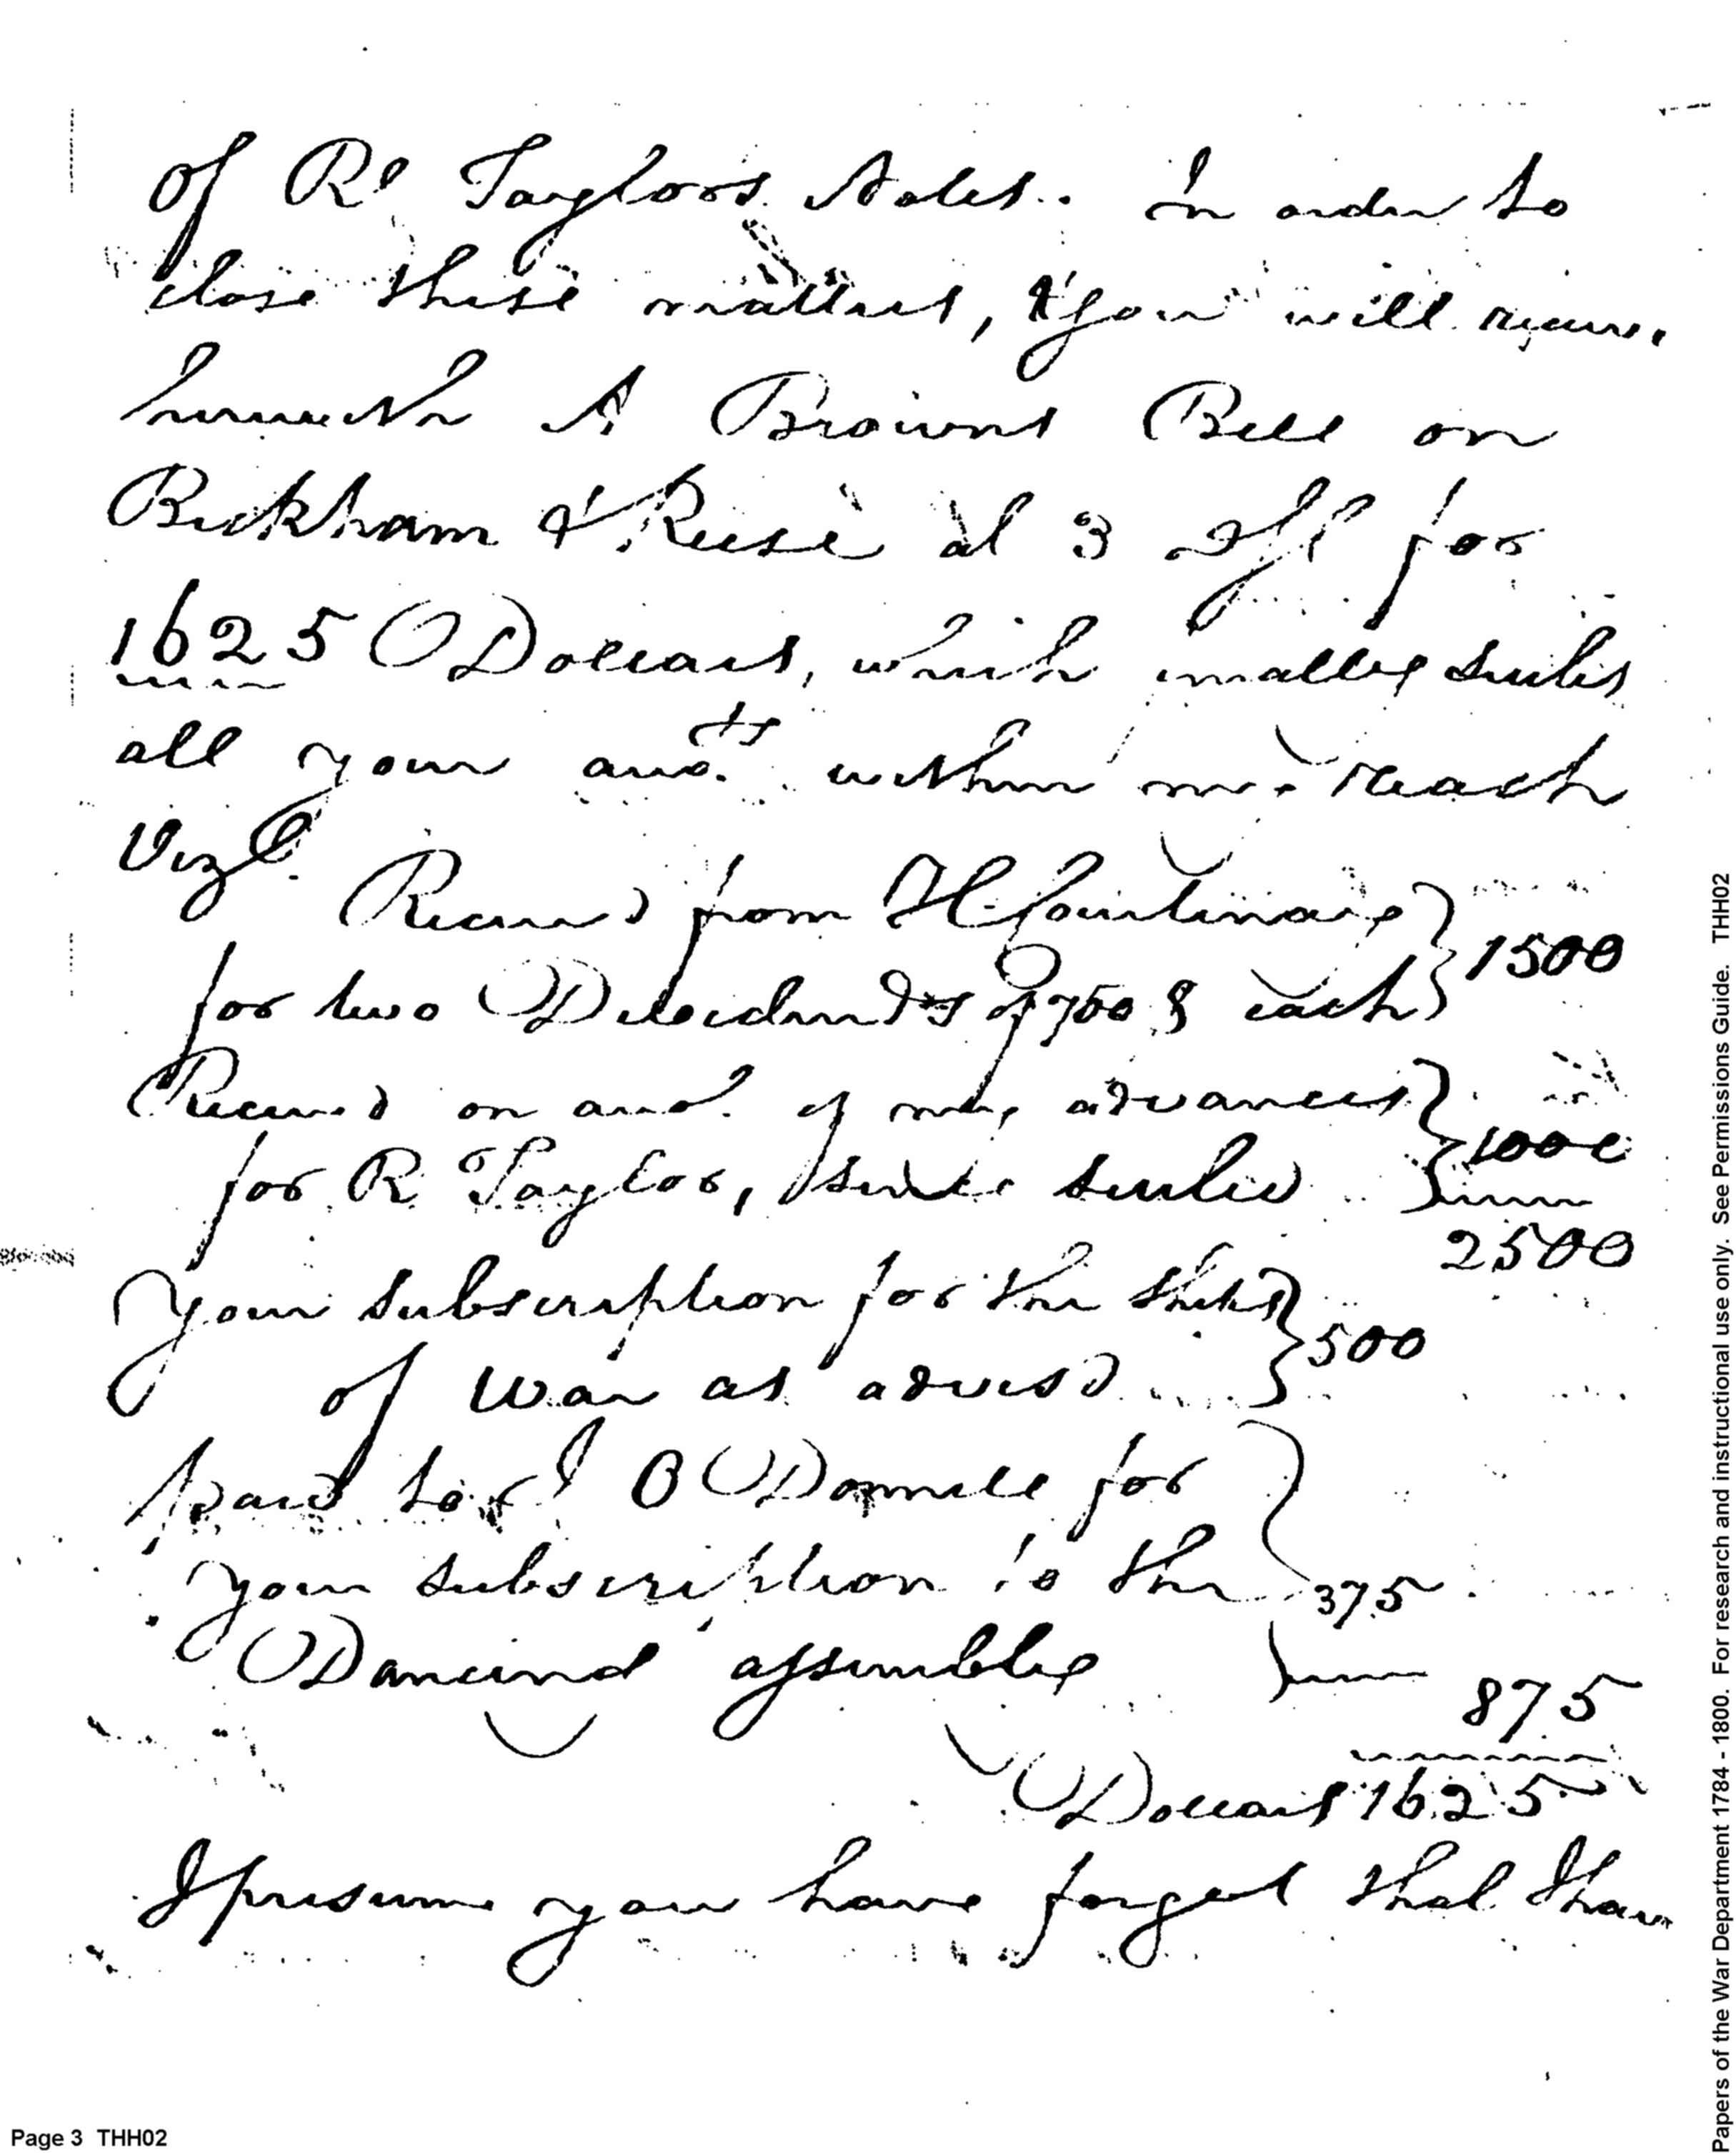 of Rd Taylors Notes. In order to
close these matters, & you will receive
herewith A Browns Bill on
Beckham & Reese at 3 for
1625 Dollars, which settles
all your accots. within my reach
Vizt.
Received from H. Courtenay } 1500
for two Dividends of 750 $ each }
Received on acco. of my advances } 1000
for R Taylor, settled
2500
Your subscription for the Ships } 500
of War as advised
paid to O Donnell for
your subscription to the 375
Dancind assembly 875
Dollars 1625
I presume you have forgot that I have
Page 3 THH02
Papers of the War Department 1784 - 1800. For research and instructional use only. See Permissions Guide. THH02